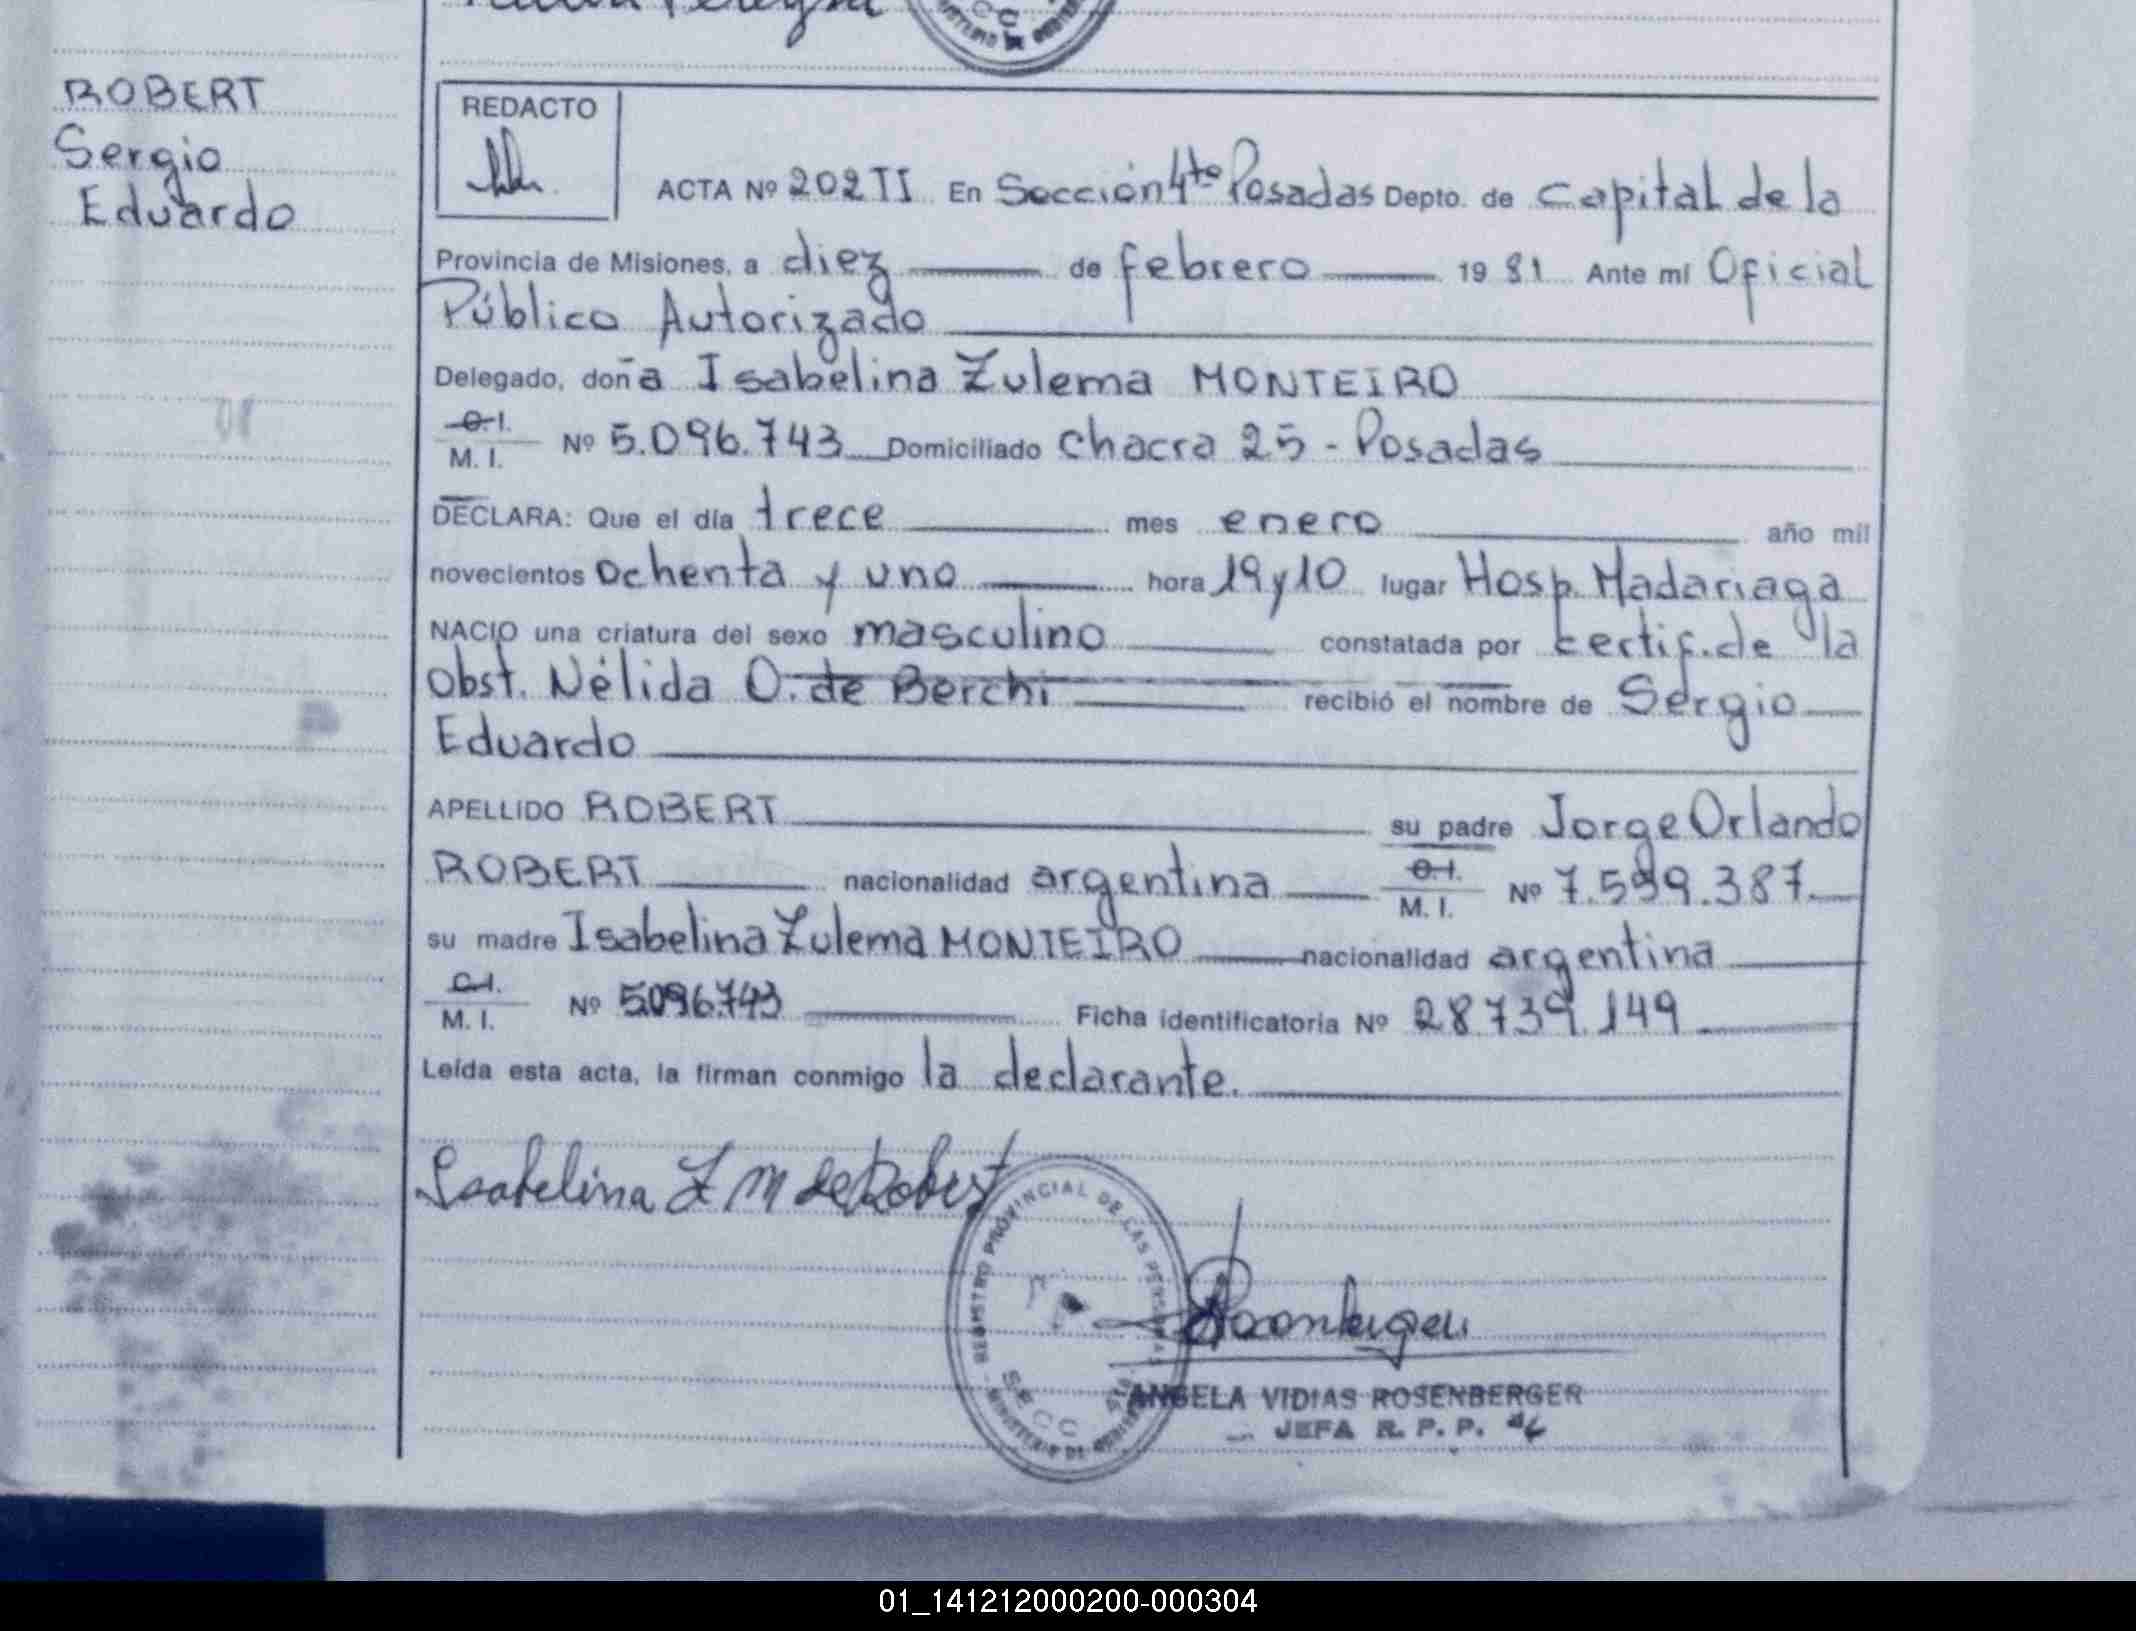 ROBERT
Sergio
Eduardo
REDACTO
ACTA Nº 202 II En Sección 4ta Posadas Depto. de Capital de la
Provincia de Misiones, a diez de febrero 1981 Ante mí Oficial
Público Autorizado
Delegado, doña Isabelina Zulema MONTEIRO
C.I.
M. I. Nº 5.096.743 Domiciliado Chacra 25 - Posadas
DECLARA: Que el día trece mes enero año mil
novecientos Ochenta y uno hora 19 y 10 lugar Hosp. Madariaga
NACIO una criatura del sexo masculino constatada por certif. de la
Obst. Nélida O. de Berchi recibió el nombre de Sergio
Eduardo
APELLIDO ROBERT su padre Jorge Orlando
ROBERT nacionalidad argentina C.I. M. I. Nº 7.599.387
su madre Isabelina Zulema MONTEIRO nacionalidad argentina
C.I.
M. I. Nº 5.096.743 Ficha identificatoria Nº 28739.149
Leída esta acta, la firman conmigo la declarante.
Isabelina Z M de Robert
REGISTRO PROVINCIAL DE LAS PERSONAS
SECC
MINISTERIO DE
ANGELA VIDIAS ROSENBERGER
JEFA R. P. P.
01_141212000200-000304